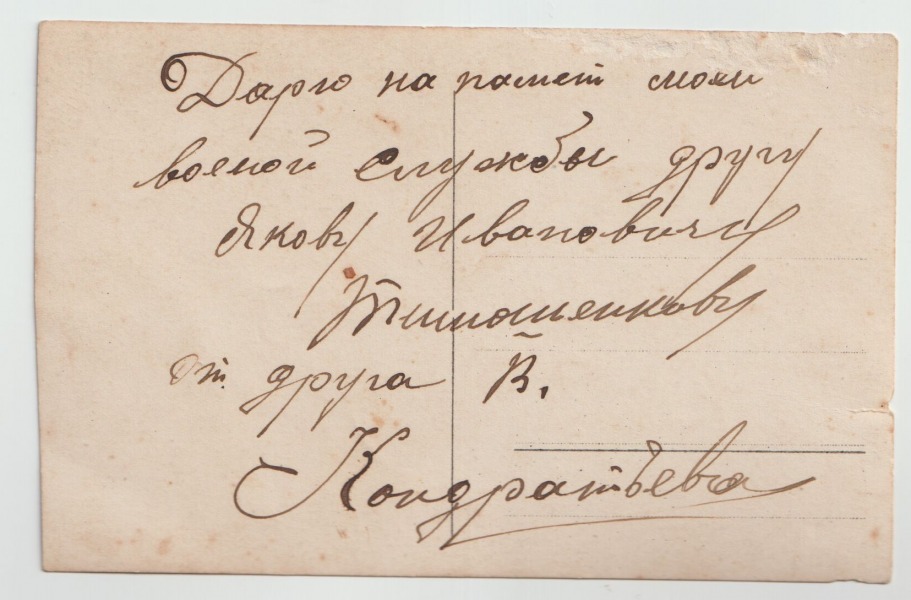 Дарю на памет моей
военой службы другу
Якову Ивановичу
Тимошенкову
от друга В.
Кондратьева